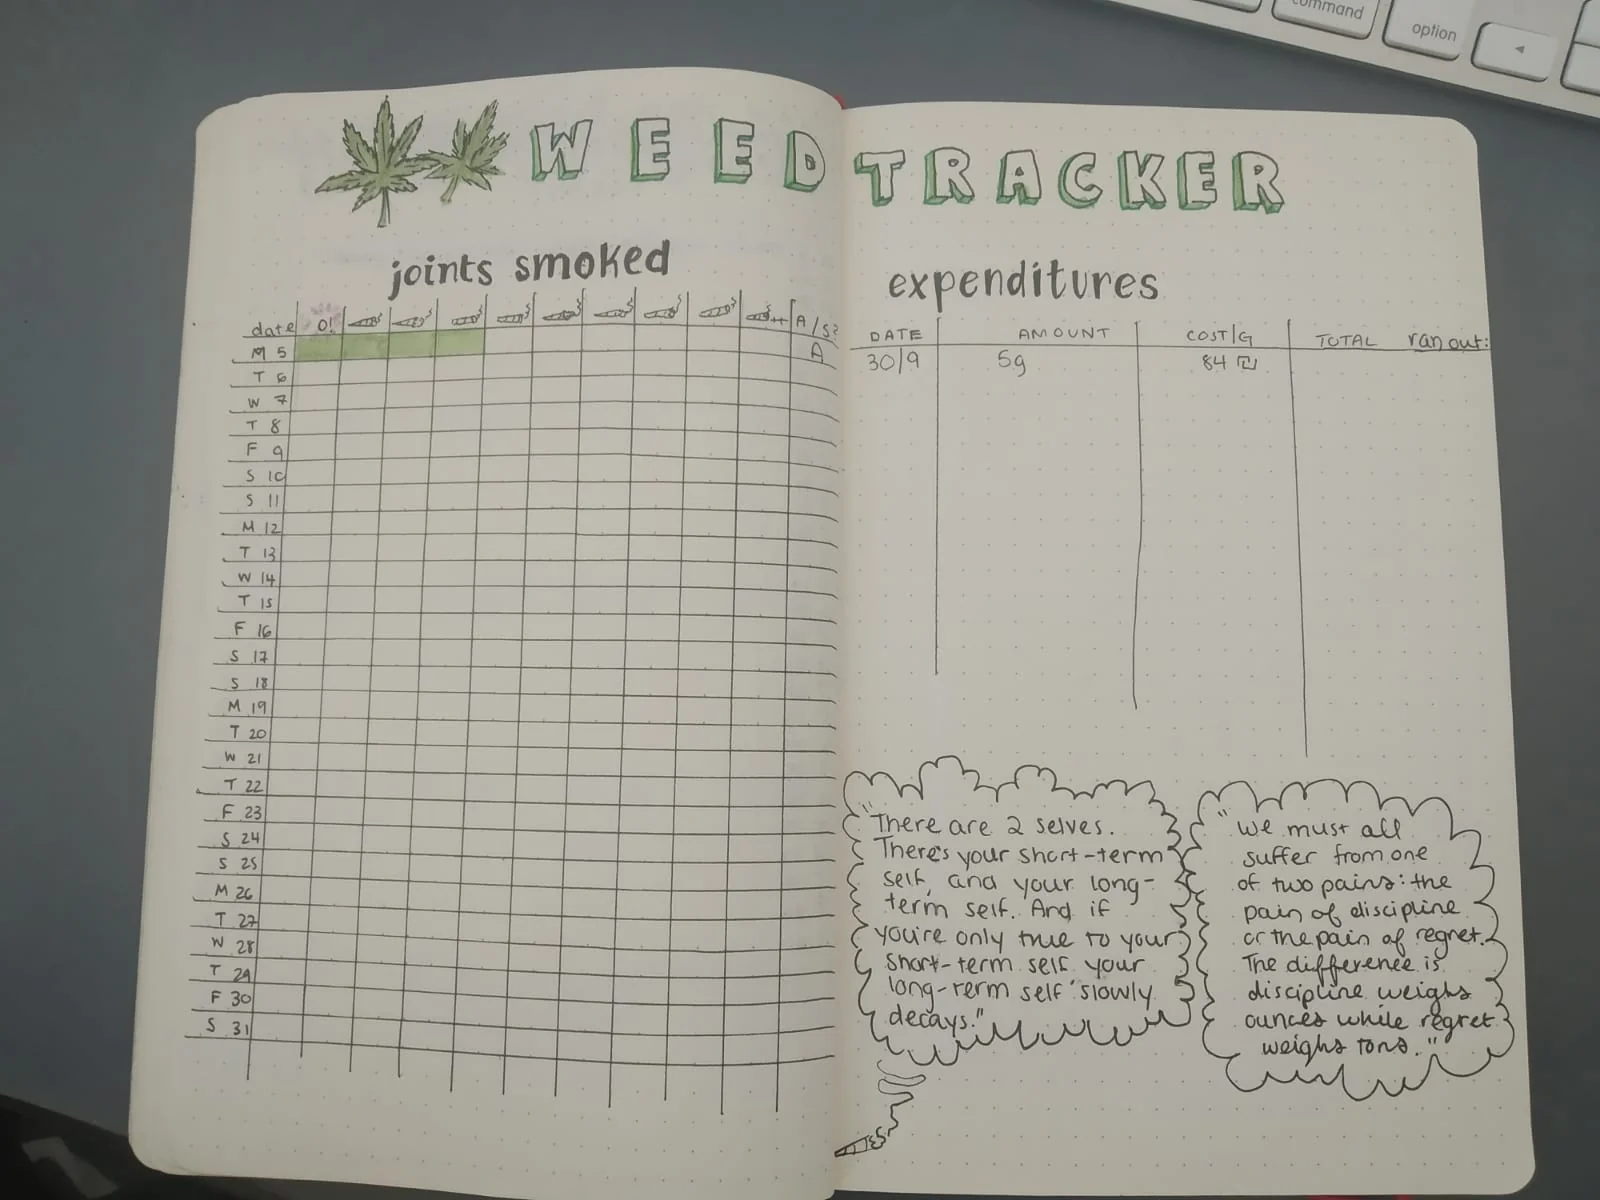 command
option
WEED TRACKER
joints smoked
date 0! ++ A/S?
M 5 A
T 6
W 7
T 8
F 9
S 10
S 11
M 12
T 13
W 14
T 15
F 16
S 17
S 18
M 19
T 20
W 21
T 22
F 23
S 24
S 25
M 26
T 27
W 28
T 29
F 30
S 31
expenditures
DATE AMOUNT COST/G TOTAL ran out:
30/9 5g 84 ₪
"There are 2 selves.
There's your short-term
self, and your long-
term self. And if
you're only true to your
short-term self your
long-term self slowly
decays."
"We must all
suffer from one
of two pains: the
pain of discipline
or the pain of regret.
The difference is
discipline weighs
ounces while regret
weighs tons."